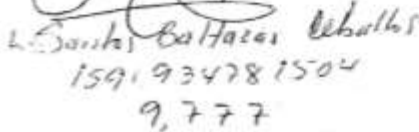 L. Santos Baltazar Ceballos
159.934781504
9,777